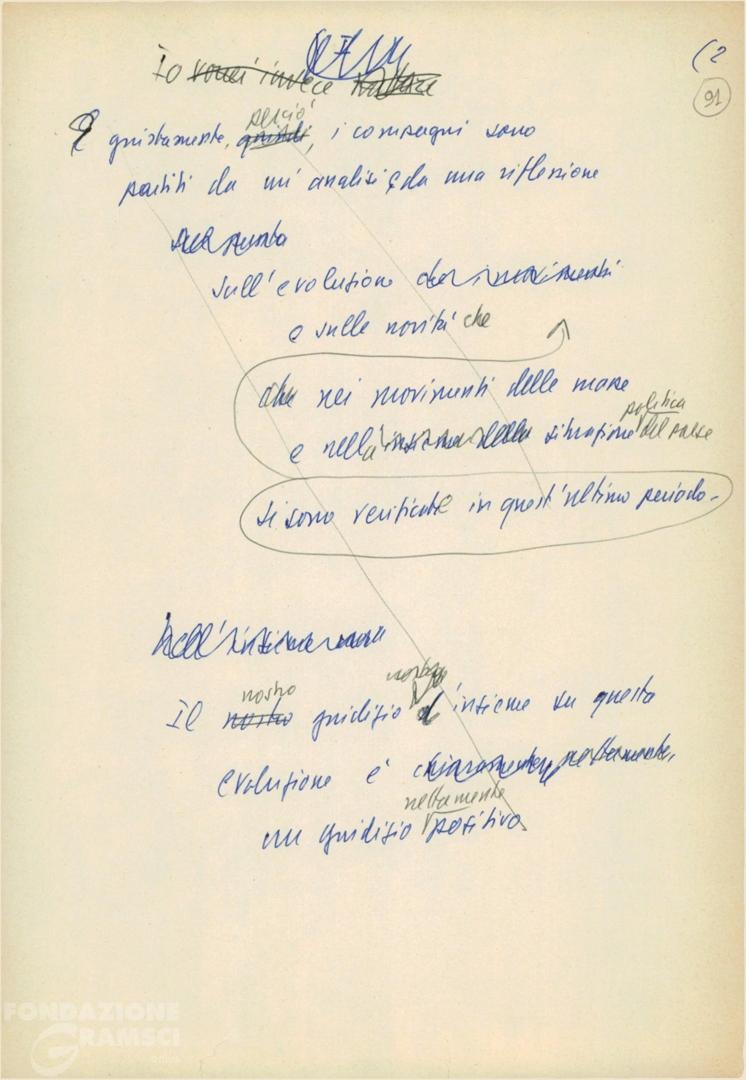 (2
91
Io vorrei invece
perciò
E giustamente, quindi, i compagni sono
partiti da un'analisi e da una riflessione
sul punto
sull'evoluzione dei movimenti
e sulle novità che
che nei movimenti delle masse
politica
e nella insieme della situazione del paese
si sono verificate in quest'ultimo periodo.
Nell'insieme
nostro nostro
Il nostro giudizio d'insieme su questa
evoluzione è chiaramente, nettamente,
nettamente
un giudizio positivo
FONDAZIONE
GRAMSCI
onlus